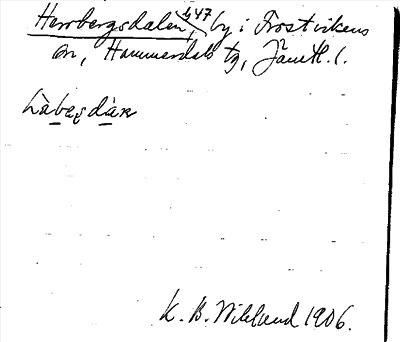 Herrbergsdalen, by i Frostvikens
sn, Hammerdals tg, Jämtl. l.
K. B. Wiklund 1906.